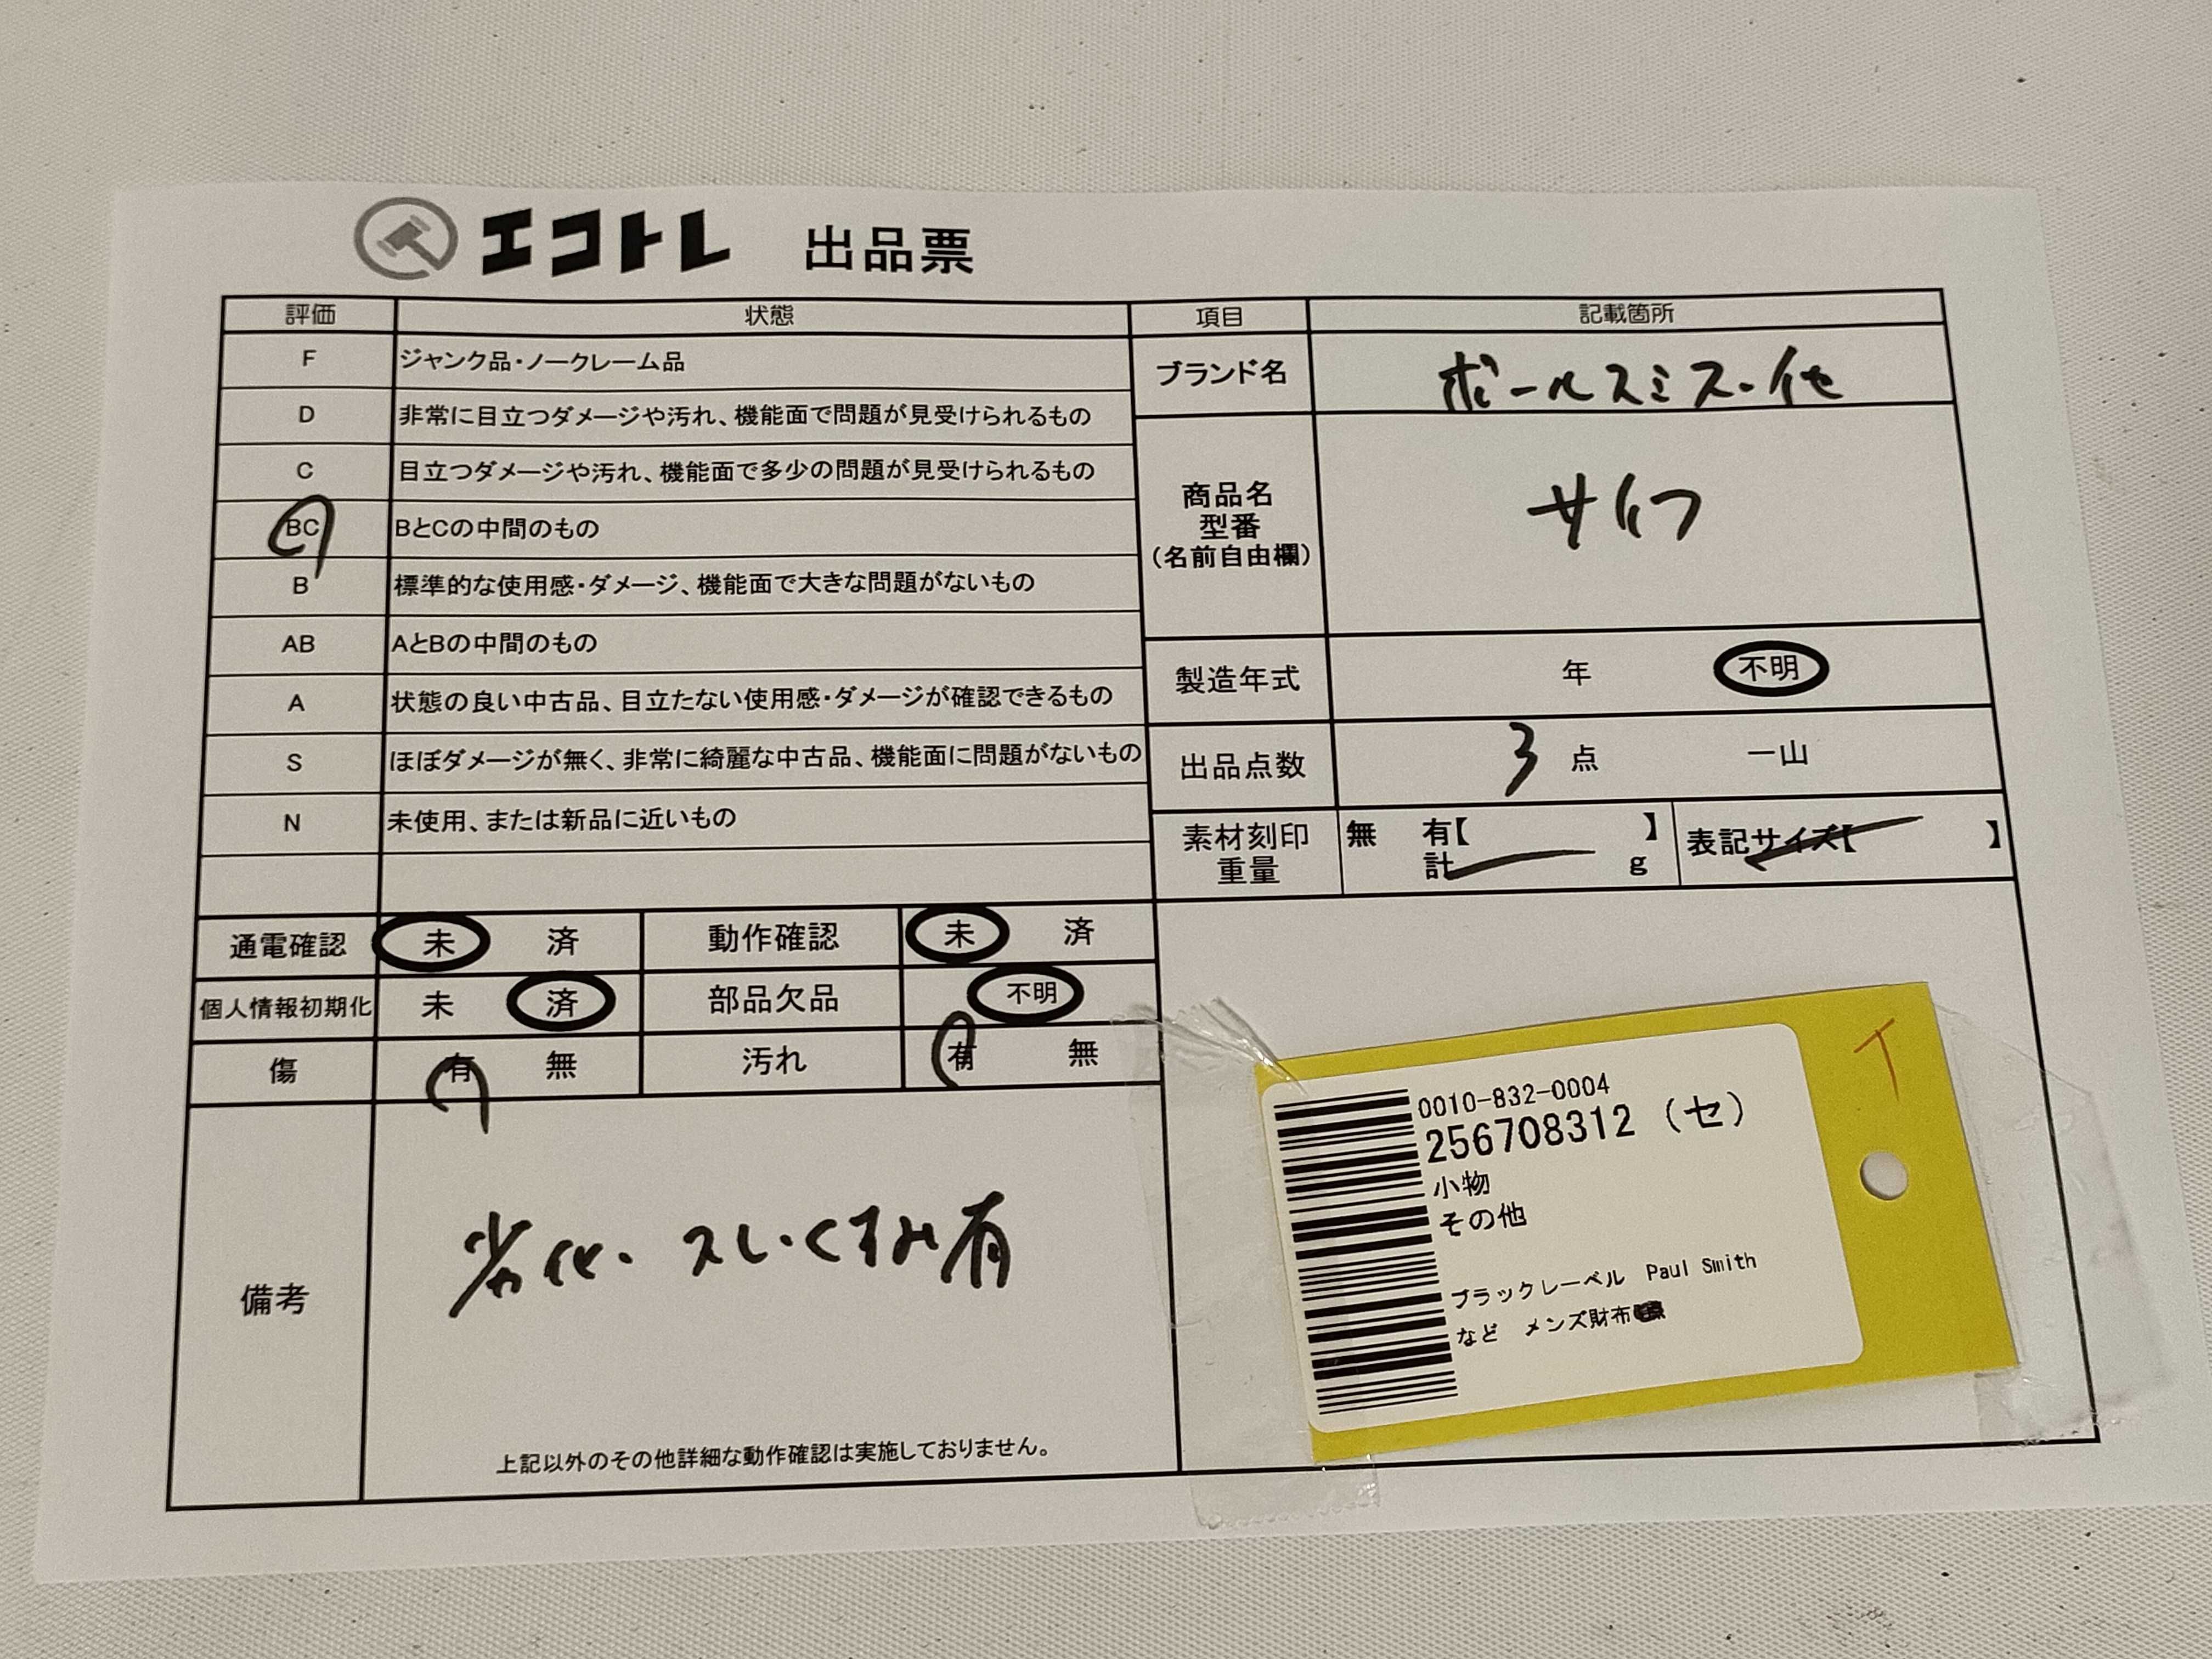 エコトレ 出品票
評価 状態 項目 記載箇所
F ジャンク品・ノークレーム品
D 非常に目立つダメージや汚れ、機能面で問題が見受けられるもの
C 目立つダメージや汚れ、機能面で多少の問題が見受けられるもの
BC BとCの中間のもの
B 標準的な使用感・ダメージ、機能面で大きな問題がないもの
AB AとBの中間のもの
A 状態の良い中古品、目立たない使用感・ダメージが確認できるもの
S ほぼダメージが無く、非常に綺麗な中古品、機能面に問題がないもの
N 未使用、または新品に近いもの
ブランド名 ポールスミス・他
商品名
型番
(名前自由欄)
サイフ
製造年式 年 不明
出品点数 3 点 一山
素材刻印 無 有【 】
重量 計 g
表記サイズ【 】
通電確認 未 済 動作確認 未 済
個人情報初期化 未 済 部品欠品 不明
傷 有 無 汚れ 有 無
備考
劣化・スレ・くすみ有
上記以外のその他詳細な動作確認は実施しておりません。
イ
0010-832-0004
256708312 (セ)
小物
その他
ブラックレーベル Paul Smith
など メンズ財布